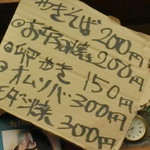 やきそば 200円
お好焼 200円
卵やき 150円
オムソバ 300円
焼 300円